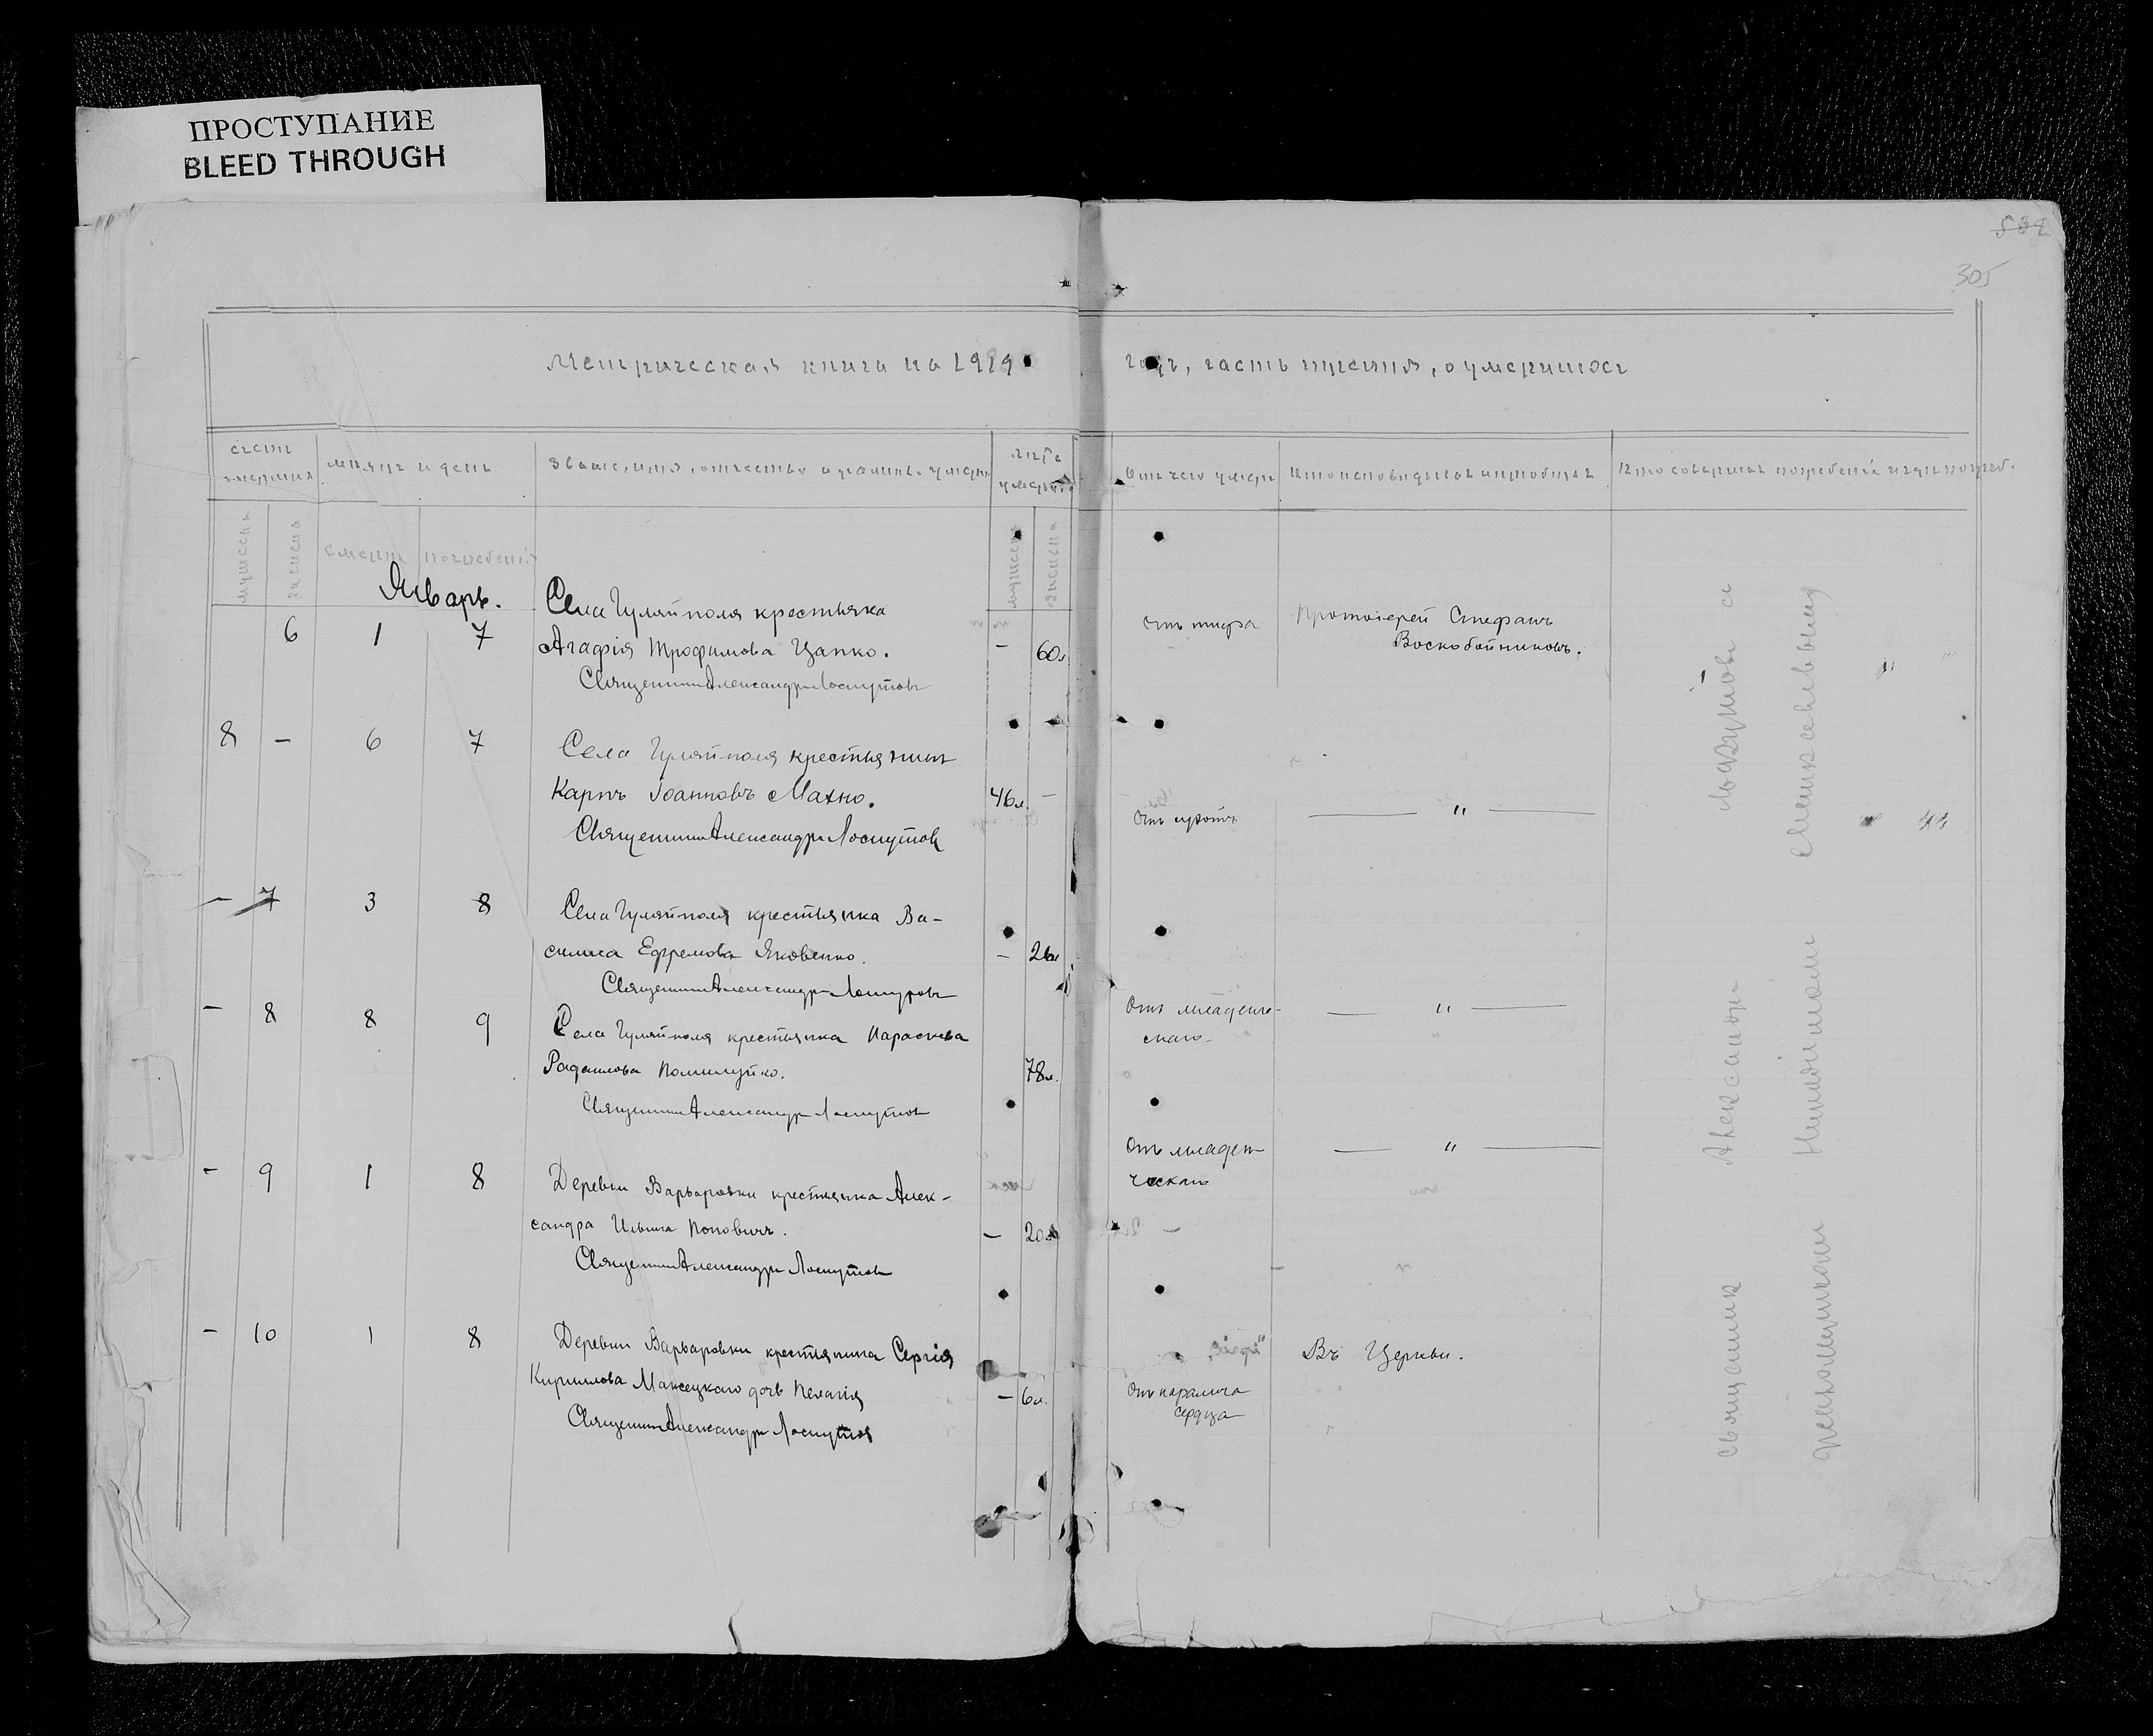 ПРОСТУПАНИЕ
BLEED THROUGH
582
305
Метрическая книга на 1919
годъ, часть третія, о умершихъ
счетъ
умершихъ
мѣсяцъ и день
Званіе, имя, отчество и фамилія умерш
лѣта
умерш
Отъ чего умеръ
Кто исповѣдывалъ и пріобщалъ
Кто совершалъ погребеніе и гдѣ погреб.
мужеска
женска
смерти
погребенія
мужеска
женска
Январь.
6 1 7
Села Гуляйполя крестьянка
Агафія Трофимова Цапко.
— 60л
Священникъ Александръ Лоскутовъ
Отъ тифа
Протоіерей Стефанъ
Воскобойниковъ.
8 — 6 7
Села Гуляйполя крестьянинъ
Карпъ Іоанновъ Махно.
46л. —
Священникъ Александръ Лоскутовъ
Отъ
— " —
— 7 3 8
Села Гуляйполя крестьянка Ва-
силиса Ефремова Яковенко.
— 26л
Священникъ Александръ Лоскутовъ
Отъ младенче-
скаго
— " —
— 8 8 9
Села Гуляйполя крестьянка Параскева
78л.
Священникъ Александръ Лоскутовъ
Отъ младен-
ческаго
— " —
— 9 1 8
Деревни Варваровки крестьянка Алек-
сандра Ильина Поповичъ.
— 20л
Священникъ Александръ Лоскутовъ
— 10 1 8
Деревни Варваровки крестьянина Сергія
Кириллова дочь Пелагія
— 6л.
Священникъ Александръ Лоскутовъ
Отъ паралича
сердца
Въ Церкви.
священник Александръ Лоскутовъ съ
псаломщикомъ